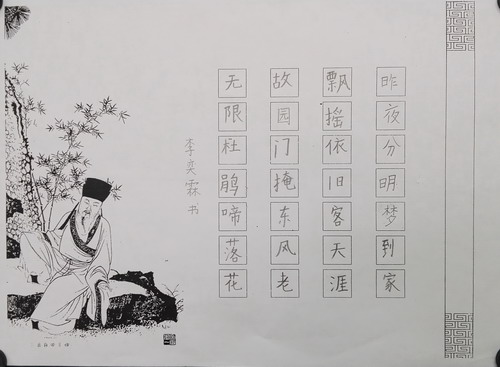 昨夜分明梦到家
飘摇依旧客天涯
故园门掩东风老
无限杜鹃啼落花
李奕霖书